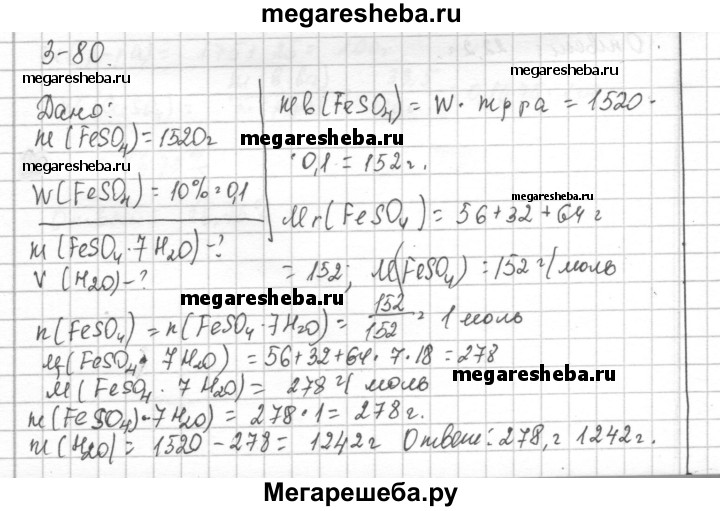 megaresheba.ru
3-80.
megaresheba.ru
megaresheba.ru
Дано:
m (FeSO4) = 1520 г
megaresheba.ru
W (FeSO4) = 10% = 0,1
m (FeSO4 · 7 H2O) - ?
V (H2O) - ?
m в (FeSO4) = W · m р-ра = 1520 ·
· 0,1 = 152 г.
megaresheba.ru
Mr (FeSO4) = 56 + 32 + 64 г
= 152; M (FeSO4) = 152 г/моль
megaresheba.ru
n (FeSO4) = n (FeSO4 · 7H2O) = 152/152 = 1 моль
M (FeSO4 · 7H2O) = 56 + 32 + 64 · 7 · 18 = 278
megaresheba.ru
M (FeSO4 · 7 H2O) = 278 г/моль
m (FeSO4) · 7H2O) = 278 · 1 = 278 г.
m (H2O) = 1520 - 278 = 1242 г Ответ: 278, г 1242 г.
Мегарешеба.ру